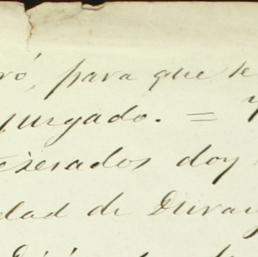 ró, para que se
juzgado. = y
iserados doy
dad de Duran